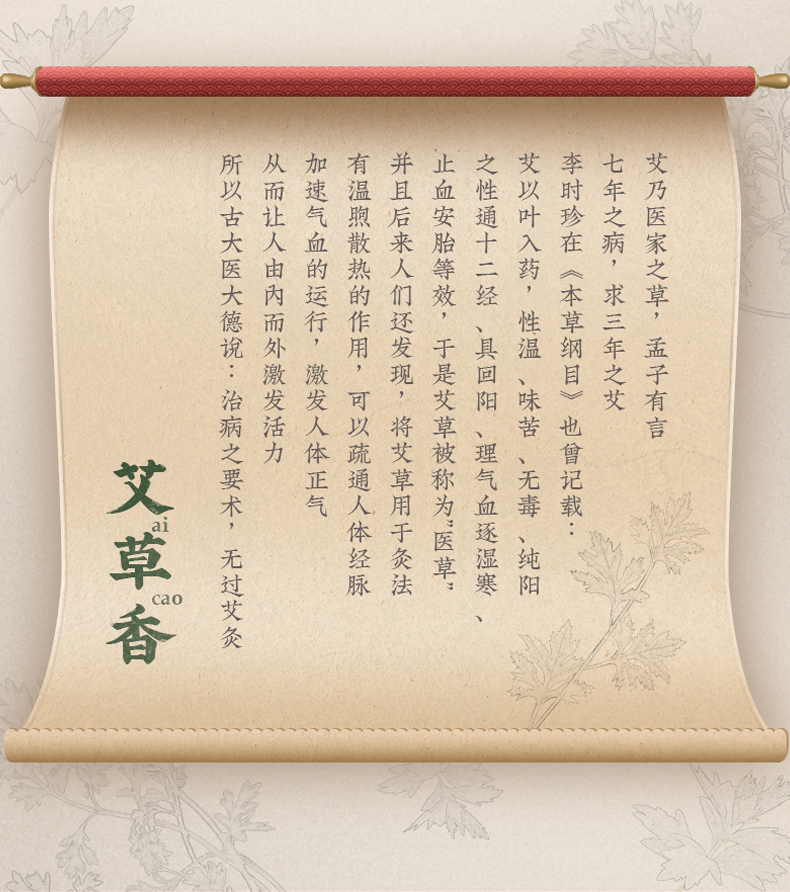 艾乃医家之草，孟子有言
七年之病，求三年之艾
李时珍在《本草纲目》也曾记载：
艾以叶入药，性温、味苦、无毒、纯阳
之性通十二经、具回阳、理气血逐湿寒、
止血安胎等效，于是艾草被称为”医草”
并且后来人们还发现，将艾草用于灸法
有温煦散热的作用，可以疏通人体经脉
加速气血的运行，激发人体正气
从而让人由内而外激发活力
所以古大医大德说：治病之要术，无过艾灸
艾草香
ai
cao